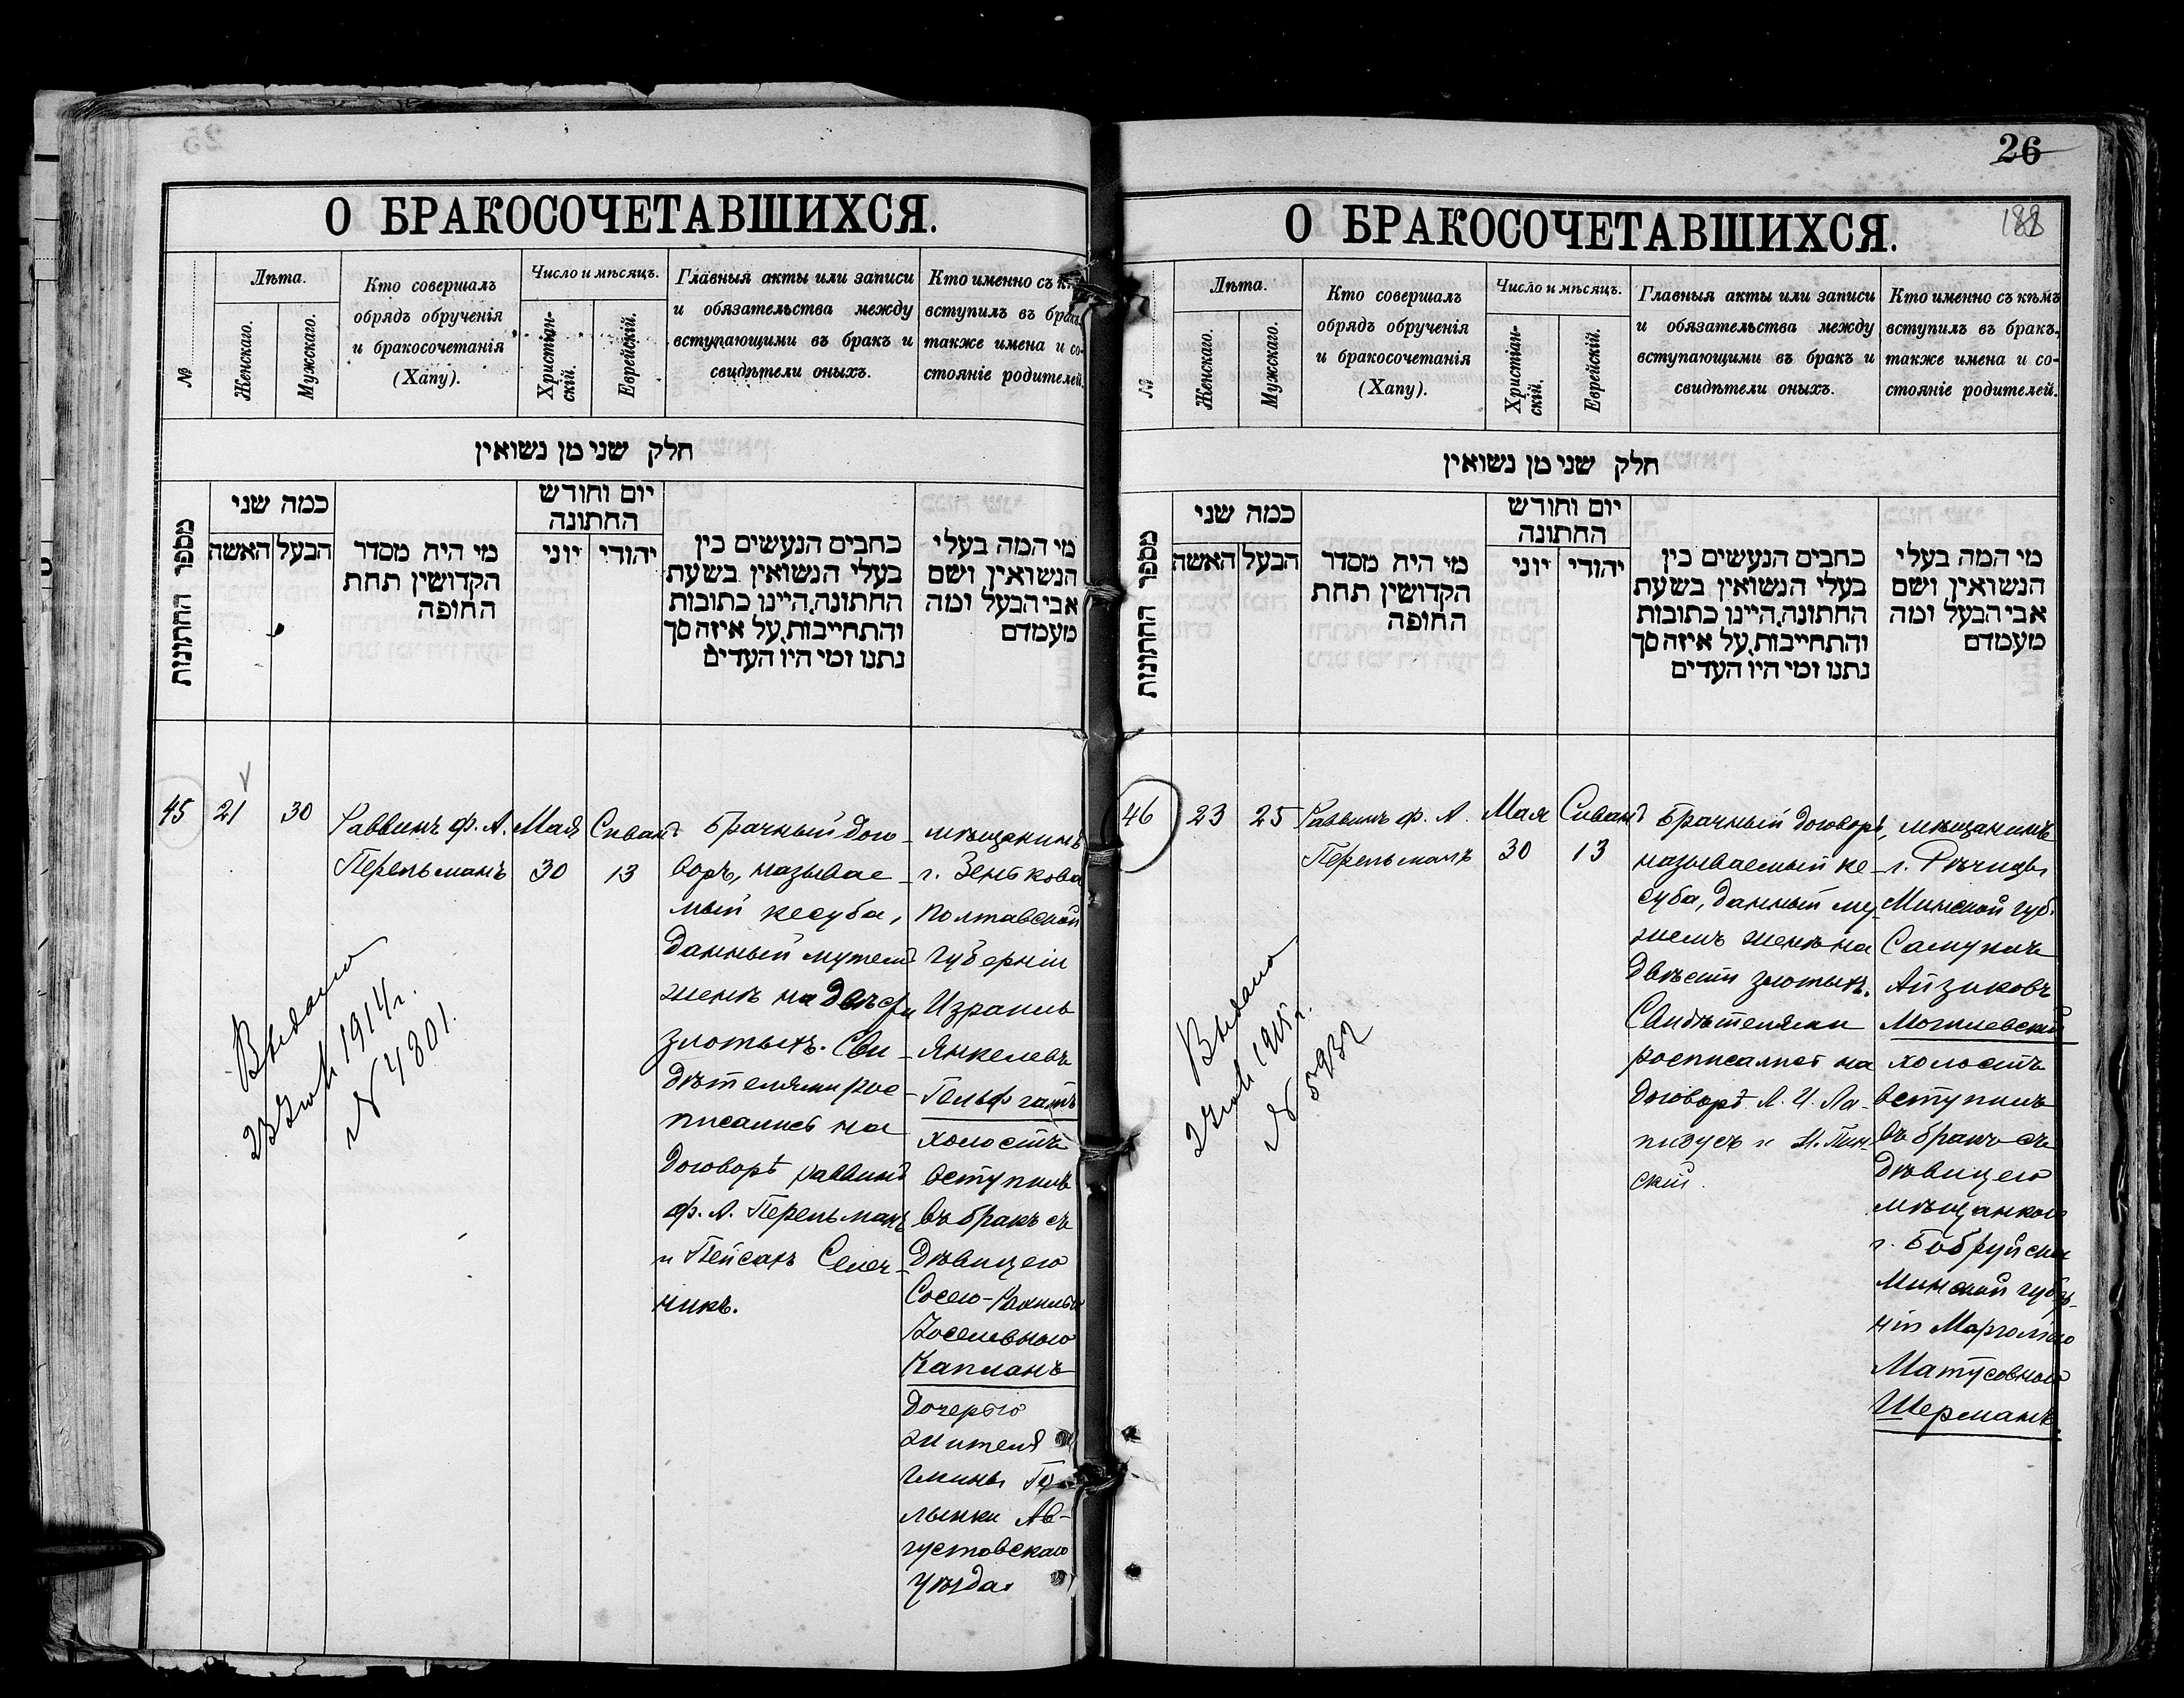 О БРАКОСОЧЕТАВШИХСЯ.
№
Лѣта.
Женскаго.
Мужскаго.
Кто совершалъ
обрядъ обрученія
и бракосочетанія
(Хапу).
Число и мѣсяцъ.
Христіан-
скій.
Еврейскій.
Главныя акты или записи
и обязательства между
вступающими въ бракъ и
свидѣтели оныхъ.
Кто именно съ
вступилъ въ бракъ,
также имена и со-
стояніе родителей.
חלק שני מן נשואין
מספר החתונות
כמה שני
האשה
הבעל
מי היה מסדר
הקדושין תחת
החופה
יום וחודש
החתונה
יוני
יהודי
כתבים הנעשים בין
בעלי הנשואין בשעת
החתונה, היינו כתובות
והתחייבות, על איזה סך
נתנו ומי היו העדים
מי המה בעלי
הנשואין ושם
אבי הבעל ומה
מעמדם
45
21
30
Раввинъ Ф. А.
Перельманъ
Мая
30
Сиванъ
13
Брачный дого-
воръ, называе-
мый кесуба,
данный мужемъ
женѣ на двѣсти
злотыхъ. Сви-
дѣтелями рос-
писались на
договорѣ раввинъ
Ф. А. Перельманъ
и Пейсахъ Селеч-
никъ.
мѣщанинъ
г. Зенькова
Полтавской
губерніи
Израиль
Янкелевъ
Гельфгатъ
холостъ
вступилъ
въ бракъ съ
дѣвицею
Сосею-Рахилью
Іоселевною
Капланъ
дочерью
жителя
гмины Го-
лынки Ав-
густовскаго
уѣзда.
Выдано
23 Іюля 1914 г.
№ 4801.
26
188
О БРАКОСОЧЕТАВШИХСЯ.
№
Лѣта.
Женскаго.
Мужскаго.
Кто совершалъ
обрядъ обрученія
и бракосочетанія
(Хапу).
Число и мѣсяцъ.
Христіан-
скій.
Еврейскій.
Главныя акты или записи
и обязательства между
вступающими въ бракъ и
свидѣтели оныхъ.
Кто именно съ кѣмъ
вступилъ въ бракъ,
также имена и со-
стояніе родителей.
חלק שני מן נשואין
מספר החתונות
כמה שני
האשה
הבעל
מי היה מסדר
הקדושין תחת
החופה
יום וחודש
החתונה
יוני
יהודי
כתבים הנעשים בין
בעלי הנשואין בשעת
החתונה, היינו כתובות
והתחייבות, על איזה סך
נתנו ומי היו העדים
מי המה בעלי
הנשואין ושם
אבי הבעל ומה
מעמדם
46
23
25
Раввинъ Ф. А.
Перельманъ
Мая
30
Сиванъ
13
Брачный договоръ,
называемый ке-
суба, данный му-
жемъ женѣ на
двѣсти злотыхъ.
Свидѣтелями
росписались на
договорѣ Л. И. Ла-
пидусъ и М. Пин-
скій.
мѣщанинъ
г. Рѣчицы
Минской губ.
Самуилъ
Айзиковъ
Могилевскій
холостъ
вступилъ
въ бракъ съ
дѣвицею
мѣщанкою
г. Бобруйска
Минской губер-
ніи Марголіею
Матусовною
Шерманъ.
Выдано
2 Іюля 1915 г.
№ 5932